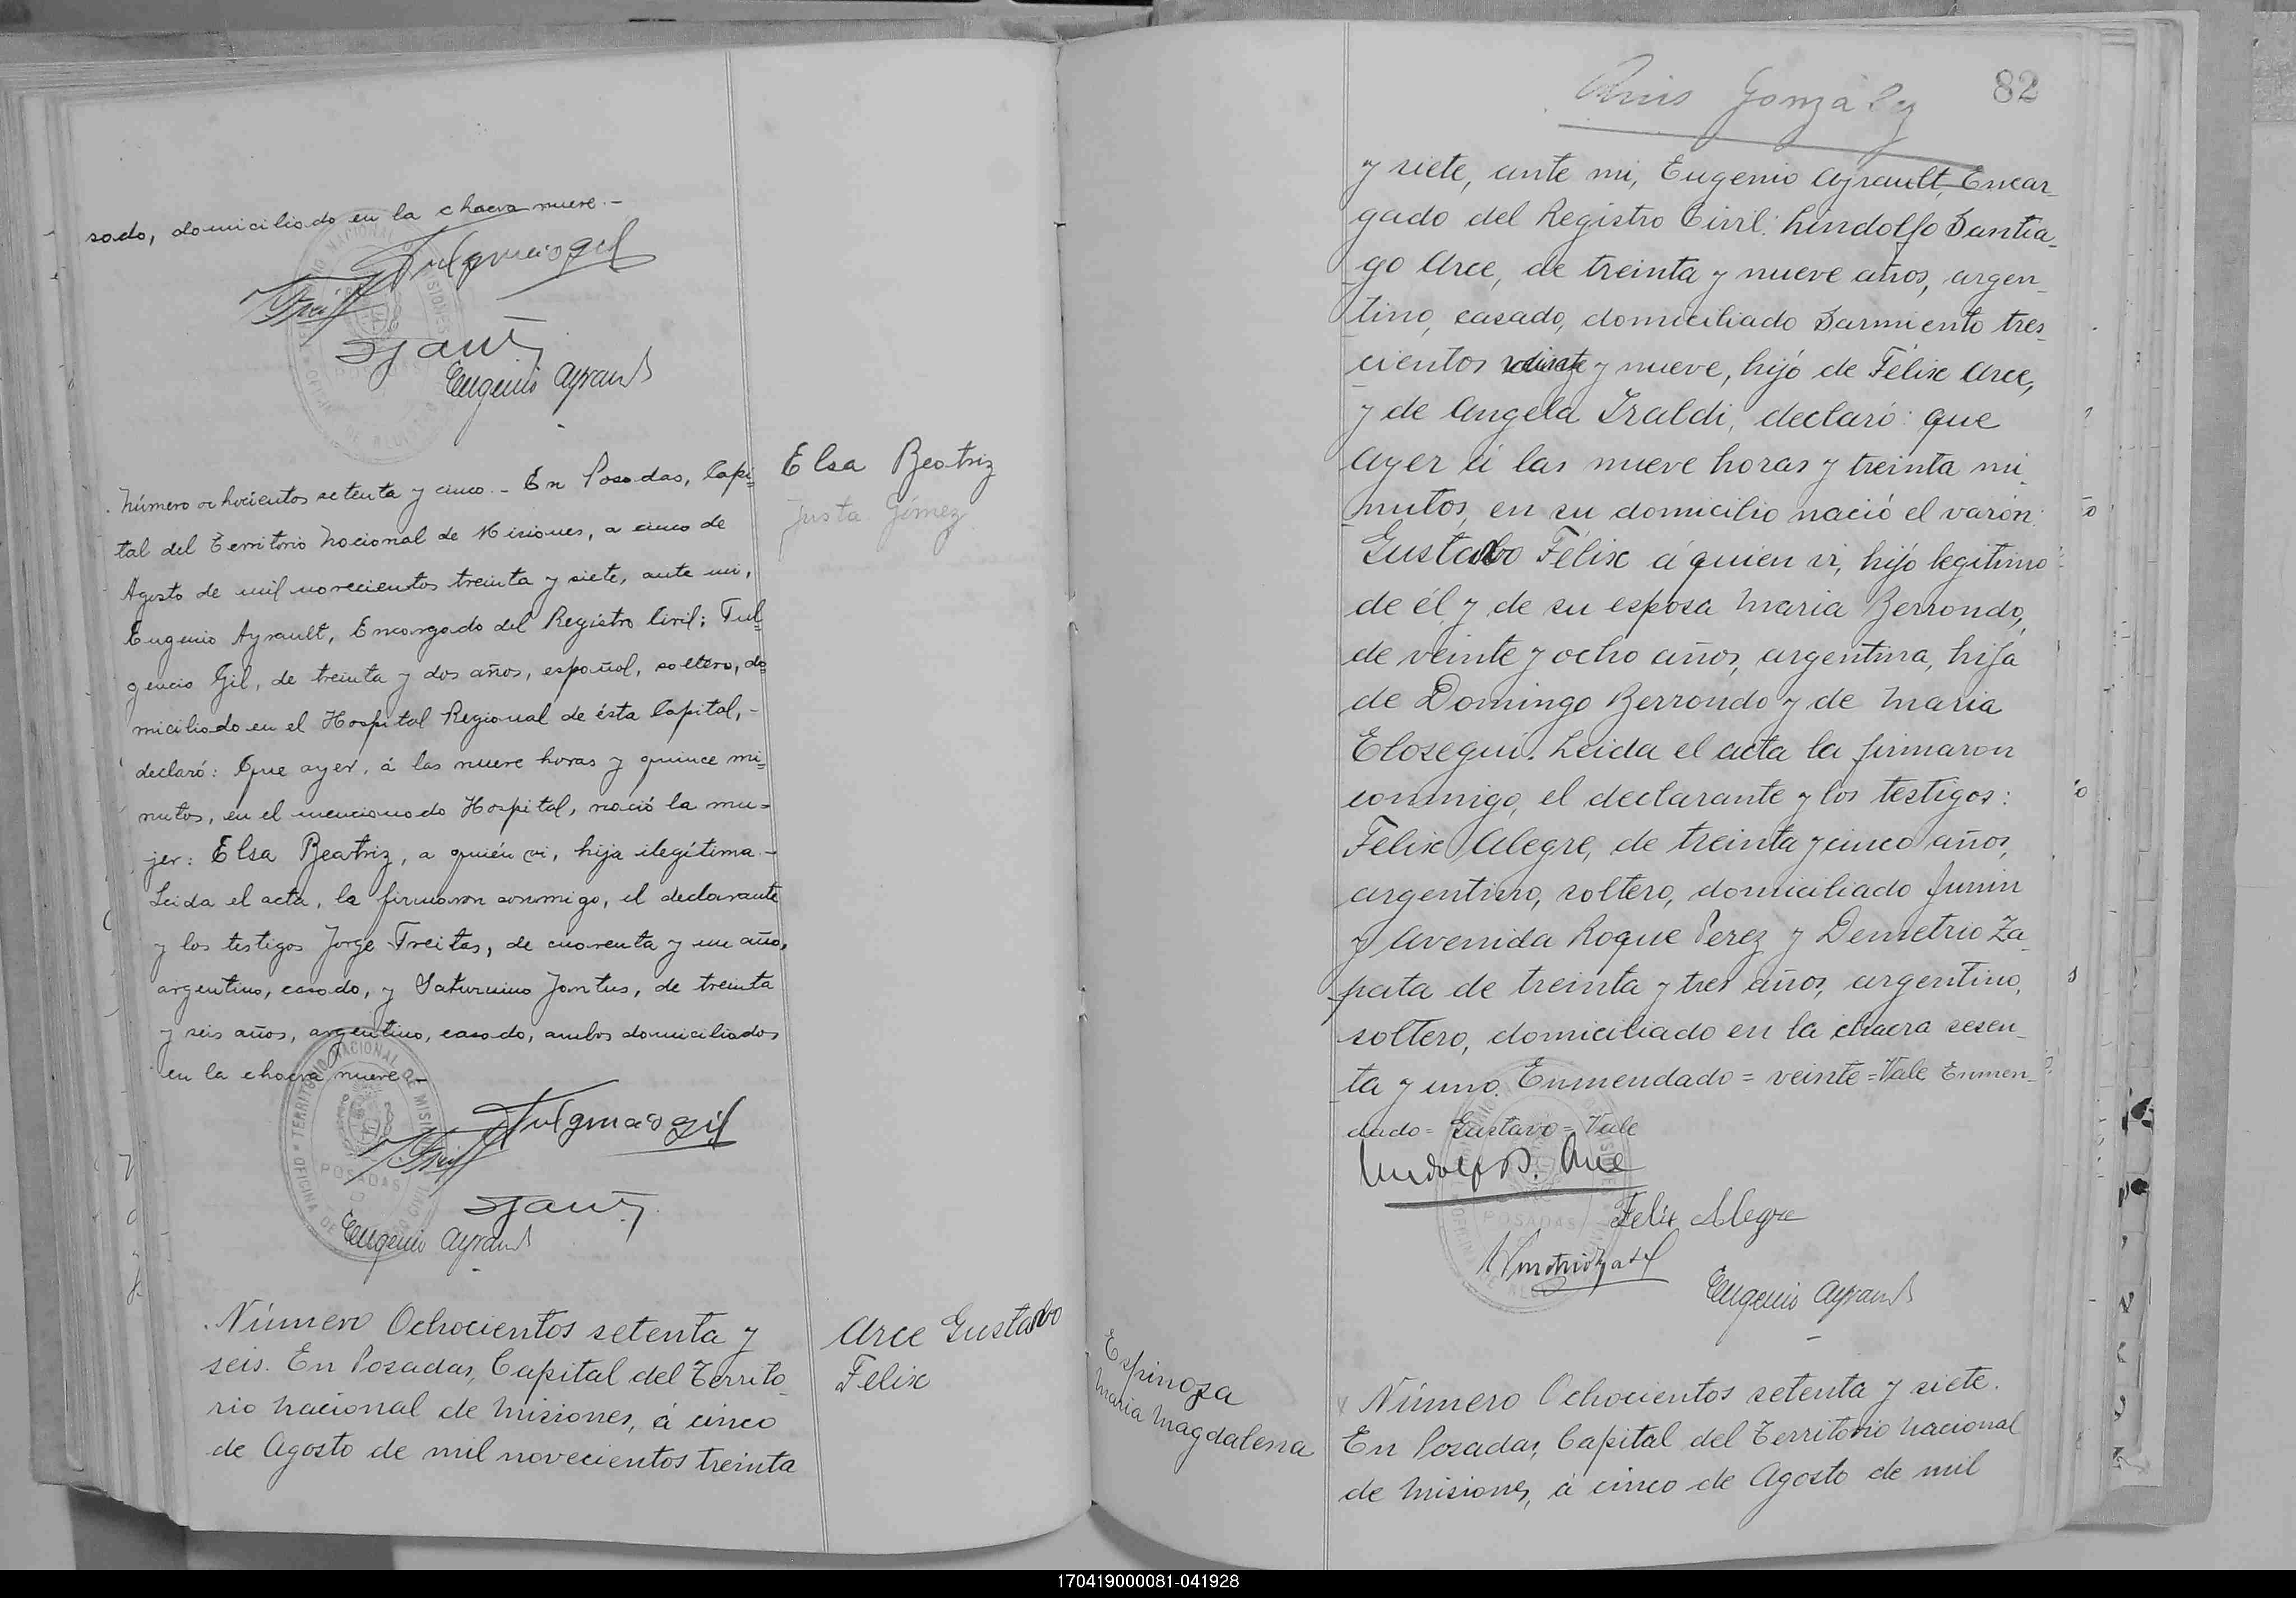 sado, domiciliado en la chacra nueve.-
Fulgencio Gil
Eugenio Ayrault
Número ochocientos setenta y cinco.- En Posadas, Capi=
tal del Territorio Nacional de Misiones, a cinco de
Agosto de mil novecientos treinta y siete, ante mi,
Eugenio Ayrault, Encargado del Registro Civil; Ful=
gencio Gil, de treinta y dos años, español, soltero, do=
miciliado en el Hospital Regional de ésta Capital,-
declaró: Que ayer, á las nueve horas y quince mi=
nutos, en el mencionado Hospital, nació la mu-
jer: Elsa Beatriz, a quién vi, hija ilegítima.-
Leida el acta, la firmaron conmigo, el declarante
y los testigos Jorge Freitas, de cuarenta y un año,
argentino, casado, y Saturnino Jantus, de treinta
y seis años, argentino, casado, ambos domiciliados
en la chacra nueve.-
Fulgencio Gil
Eugenio Ayrault
Elsa Beatriz
Justa Gímez
Número Ochocientos setenta y
seis. En Posadas, Capital del Territo-
rio Nacional de Misiones, á cinco
de Agosto de mil novecientos treinta
Arce Gustavo
Felix
82
Ruis González
y siete, ante mi, Eugenio Ayrault, Encar-
gado del Registro Civil: Lindolfo Santia-
go Arce, de treinta y nueve años, argen-
tino, casado, domiciliado Sarmiento tres
cientos veinte y nueve, hijó de Félix Arce,
y de Angela Iraldi, declaró: que
ayer á las nueve horas y treinta mi-
nutos, en su domicilio nació el varón:
Gustavo Félix á quien vi, hijo legitimo
de él y de su esposa Maria Berrondo,
de veinte y ocho años, argentina, hija
de Domingo Berrondo y de Maria
Elosegui. Leida el acta la firmaron
conmigo, el declarante y los testigos:
Felix Alegre, de treinta y cinco años,
argentino, soltero, domiciliado Junin
y Avenida Roque Perez y Demetrio Za-
pata de treinta y tres años, argentino,
soltero, domiciliado en la chacra sesen-
ta y uno. Enmendado = veinte = Vale Enmen-
dado = Gustavo = Vale
Lindolfo S. Arce
Felix Alegre
Eugenio Ayrault
Espinoza
Maria Magdalena
Número Ochocientos setenta y siete.
En Posadas, Capital del Territorio Nacional
de Misiones, á cinco de Agosto de mil
170419000081-041928